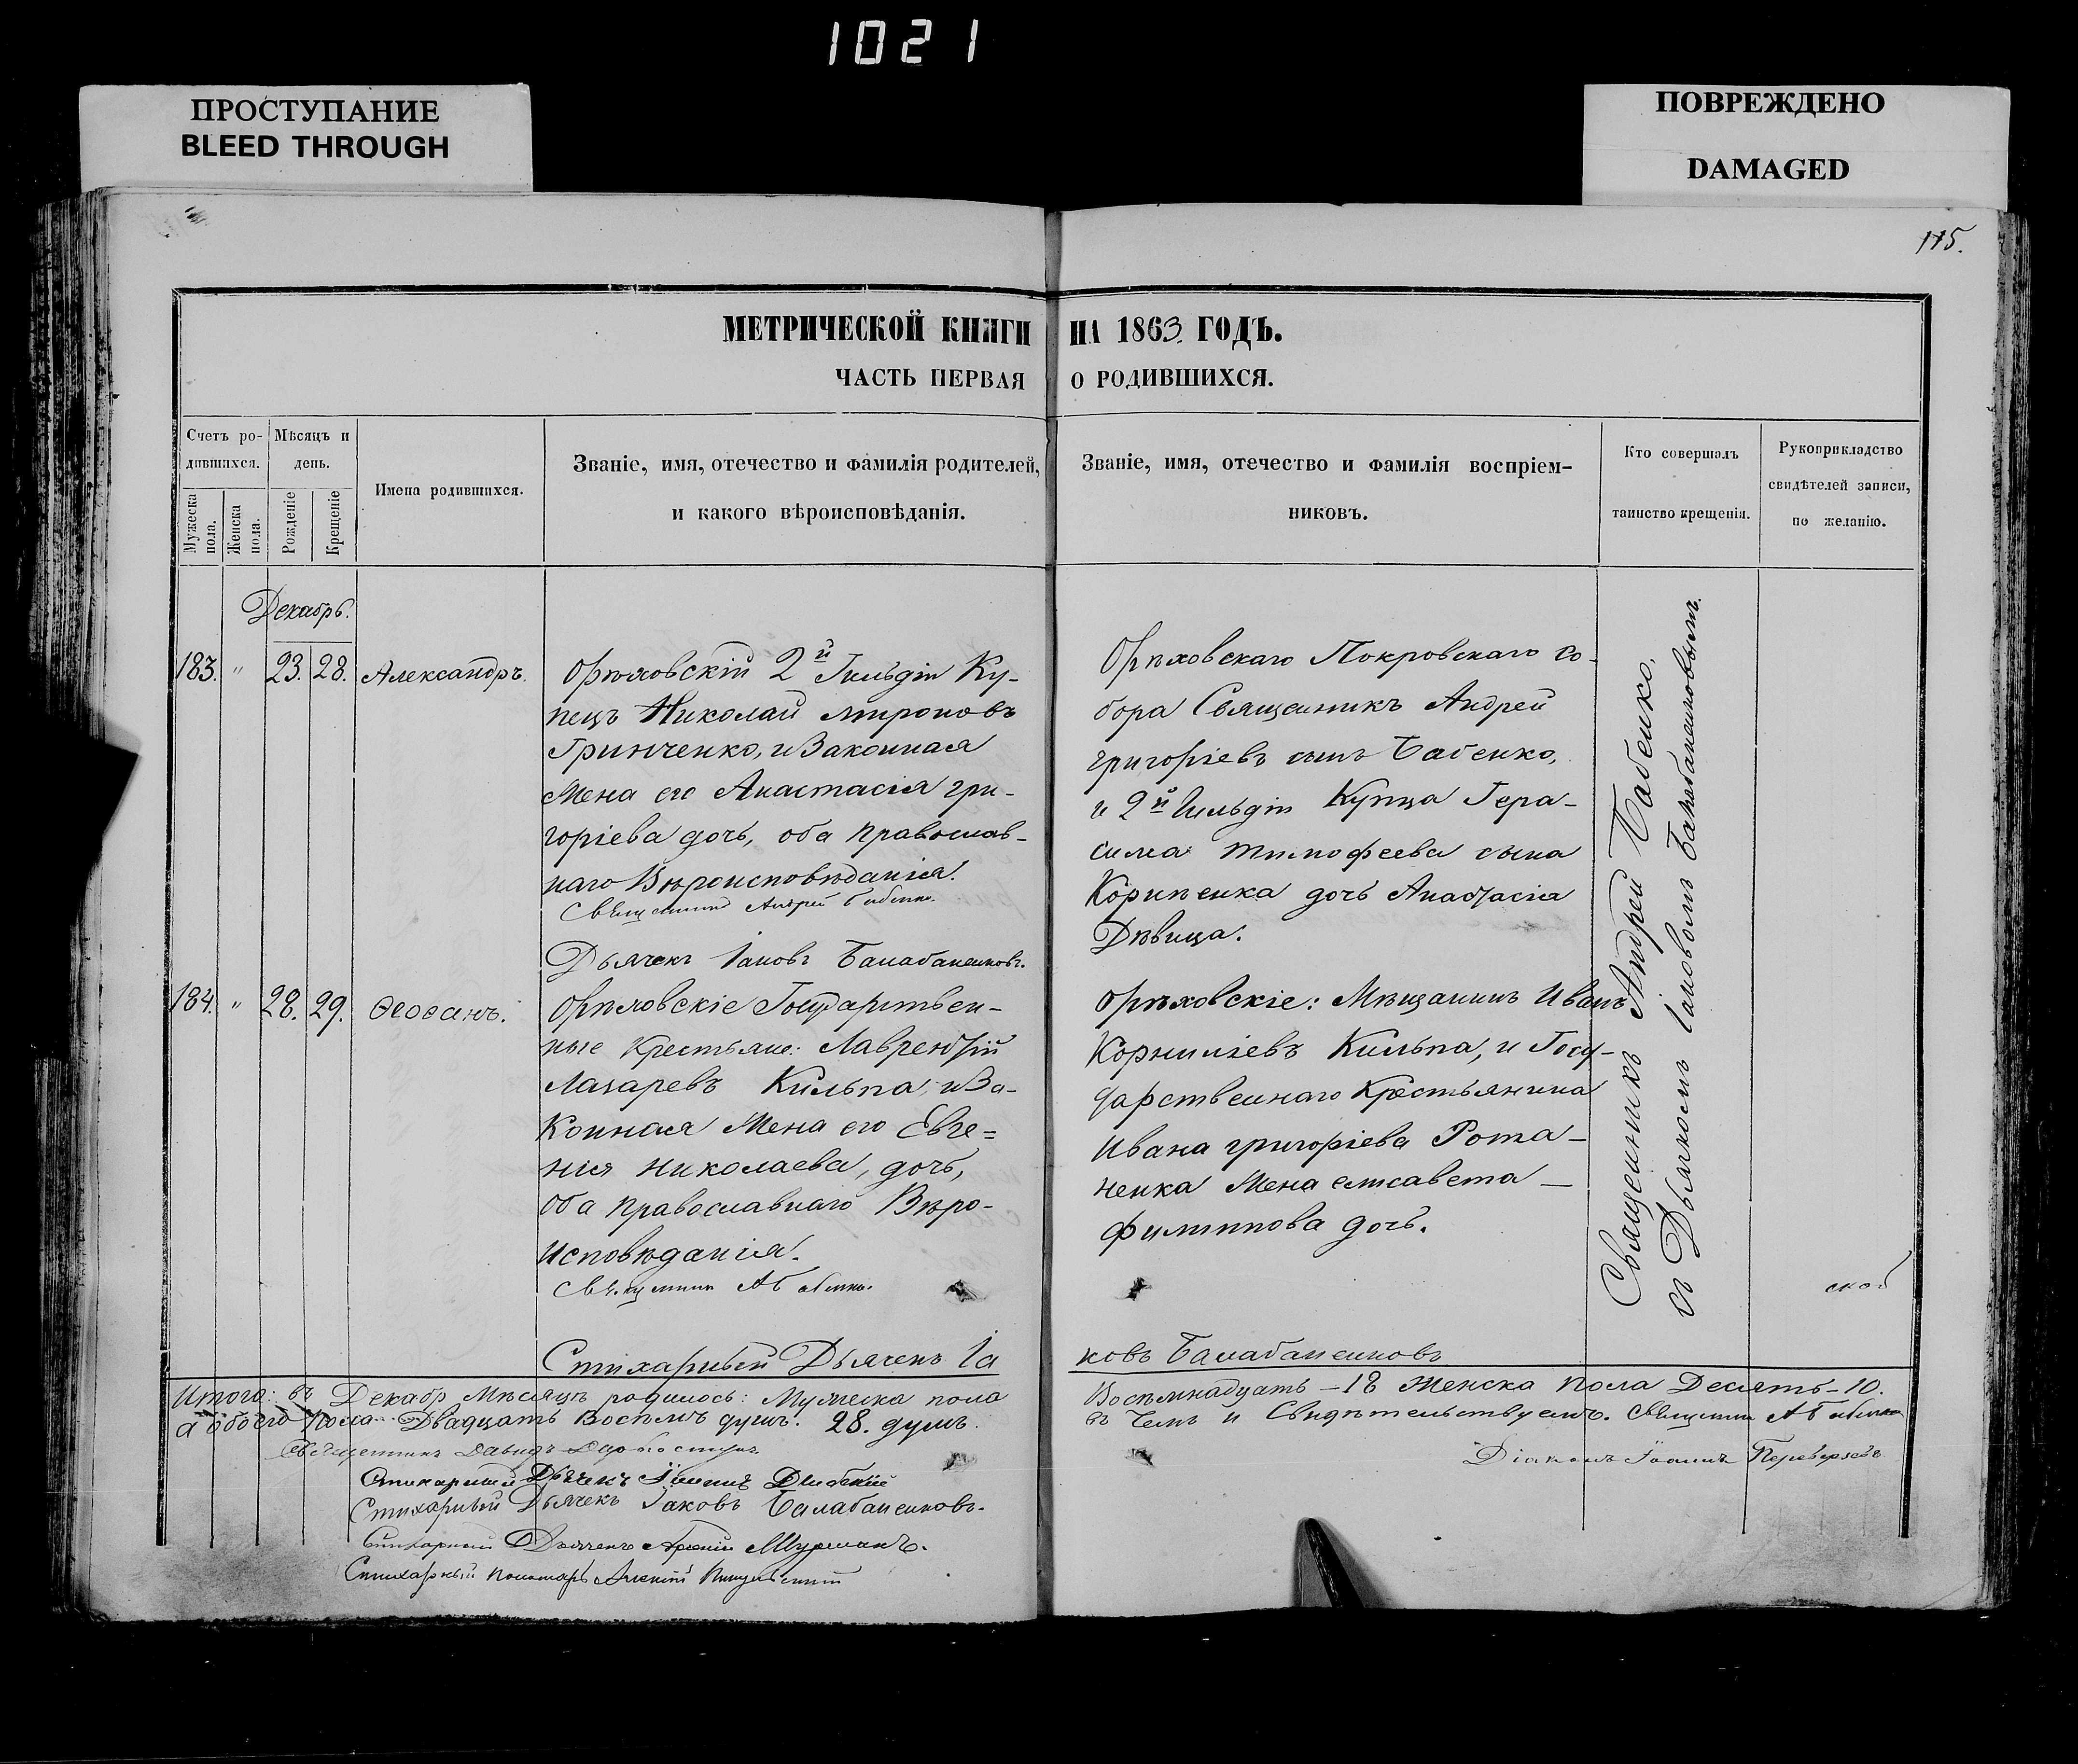 1021
ПРОСТУПАНИЕ
BLEED THROUGH
ПОВРЕЖДЕНО
DAMAGED
115.
МЕТРИЧЕСКОЙ КНИГИ НА 1863 ГОДЪ.
ЧАСТЬ ПЕРВАЯ О РОДИВШИХСЯ.
Счетъ ро-
дившихся.
Мужеска
пола.
Женска
пола.
Мѣсяцъ и
день.
Рожденіе
Крещеніе
Имена родившихся.
Званіе, имя, отечество и фамилія родителей,
и какого вѣроисповѣданія.
Званіе, имя, отечество и фамилія воспріем-
никовъ.
Кто совершалъ
таинство крещенія.
Рукоприкладство
свидѣтелей записи,
по желанію.
Декабрь.
183. " 23. 28. Александръ.
Орѣховскій 2й Гильдіи Ку-
пецъ Николай Мироновъ
Гринченко, и Законная
Жена его Анастасія Гри-
горіева дочь, оба Православ-
наго Вѣроисповѣданія.
Священникъ Андрей Бабенко.
Дьячекъ Іаковъ Балабаненковъ.
Орѣховскаго Покровскаго Со-
бора Священникъ Андрей
Григоріевъ сынъ Бабенко,
и 2й Гильдіи Купца Гера-
сима Тимофеева сына
Корпенка дочь Анастасія
Дѣвица.
184. " 28. 29. Ѳеофанъ.
Орѣховскіе Государствен-
ные Крестьяне: Лаврентій
Лазаревъ Кильпа, и За-
конная Жена его Евге=
нія Николаева, дочь,
оба Православнаго Вѣро-
исповѣданія.
Священникъ А Бабенко.
Стихарный Дьячекъ Іа
ковъ Балабаненковъ
Орѣховскіе: Мѣщанинъ Иванъ
Корниліевъ Кильпа, и Госу-
дарственнаго Крестьянина
Ивана Григоріева Рома-
ненка Жена Елисавета
Филиппова дочь.
Священникъ Андрей Бабенко,
съ Дьячкомъ Іаковомъ Балабаненковымъ.
ской
Итого: въ Декабр Мѣсяцѣ родилось: Мужеска пола
Восѣмнадцать - 18 Женска пола Десять - 10.
а обоего пола Двадцать Восѣмъ душъ. 28. душъ.
въ Чемъ и Свидѣтельствуемъ. Священникъ А Бабенко
Священникъ Давидъ
Діаконъ Іоаннъ Переверзевъ
Стихарный Дьячекъ Іоаннъ
Стихарный Дьячекъ Іаковъ Балабаненковъ.
Стихарный Дьячекъ
Стихарный Пономарь Алексій